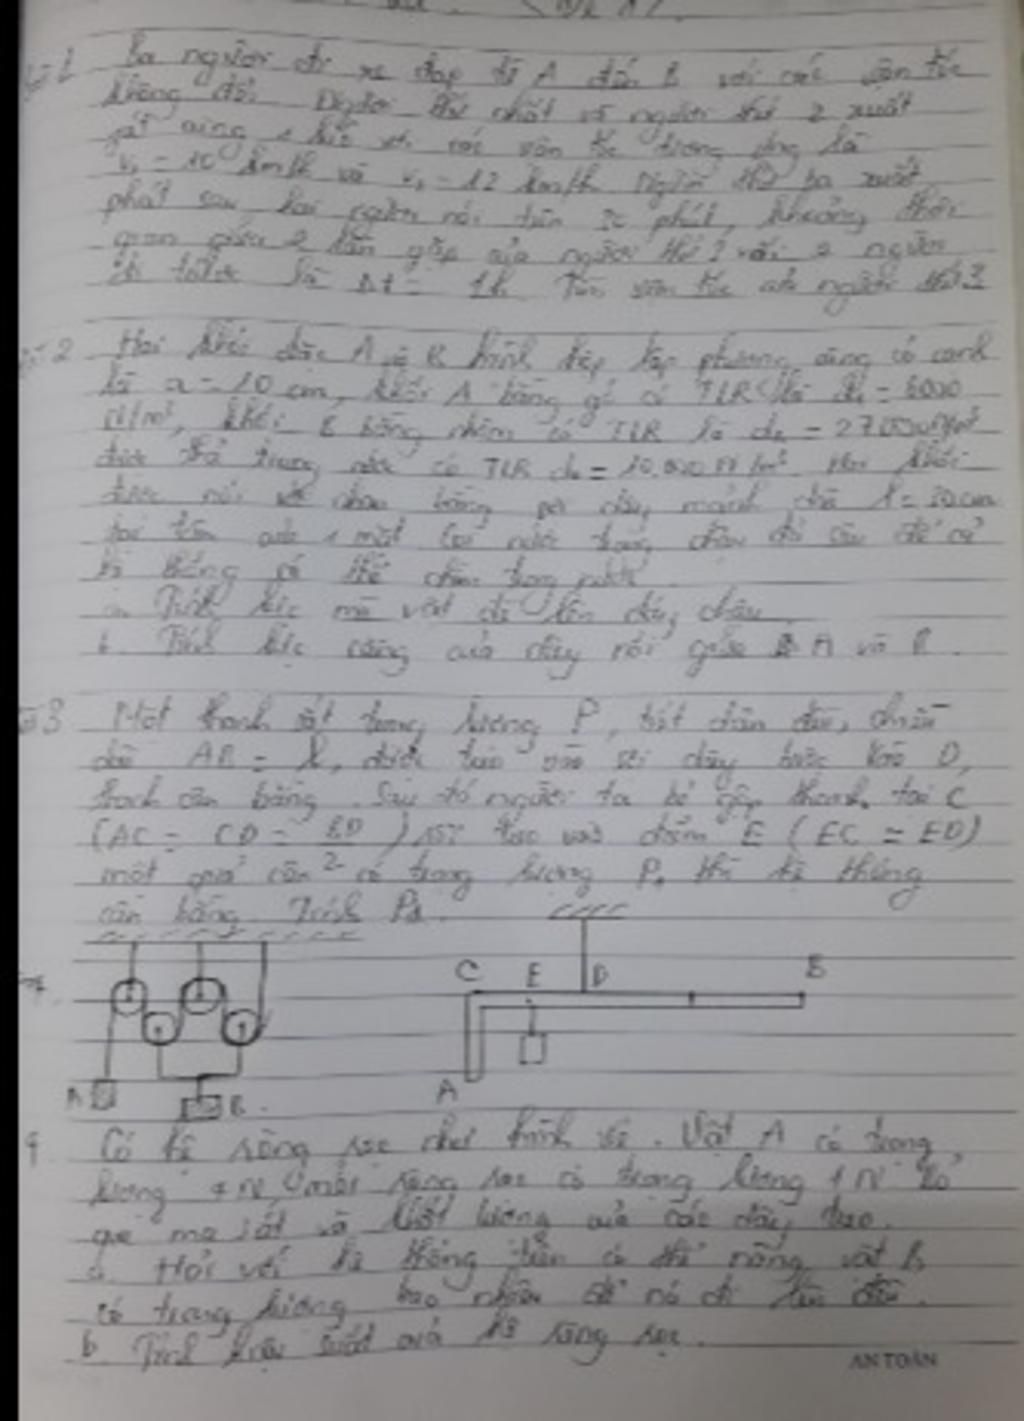 Ba người đi xe đạp từ A đến B với các vận tốc
không đổi. Người thứ nhất và người thứ 2 xuất
phát cùng 1 lúc với các vận tốc tương ứng là
v₁ = 10 km/h và v₂ = 12 km/h. Người thứ ba xuất
phát sau hai người nói trên, khoảng thời
gian giữa 2 lần gặp của người thứ 3 với 2 người
đi trước là Δt = 1h. Tìm vận tốc của người thứ 3
2 Hai khối đặc A và B hình hộp lập phương cùng có cạnh
là a = 10 cm, khối A bằng gỗ có TLR là d₁ = 6000
N/m³, khối B bằng nhôm có TLR là d₂ = 27000 N/m³
được thả trong nước có TLR d₀ = 10.000 N/m³. Hai khối
được nối với nhau bằng sợi dây mảnh dài l = 30cm
tại tâm của 1 mặt trong chậu đủ sâu để cả
hệ thống có thể chìm trong nước
a. Tính lực mà vật đè lên đáy chậu
b. Tính lực căng của dây nối giữa A và B.
3 Một thanh sắt trọng lượng P, tiết diện đều, chiều
dài AB = l, được treo vào sợi dây buộc vào D,
thanh cân bằng. Sau đó người ta bẻ gập thanh tại C
(AC = CD = BD/2) rồi treo vào điểm E (EC = ED)
một quả cân có trọng lượng P₁ thì hệ thống
cân bằng. Tính P₁.
C E D B
A
A B
4 Có hệ ròng rọc như hình vẽ. Vật A có trọng
lượng 4N, mỗi ròng rọc có trọng lượng 1N. Bỏ
qua ma sát và khối lượng của các dây treo.
a. Hỏi với hệ thống trên có thể nâng vật B
có trọng lượng bao nhiêu để nó đi lên đều.
b. Tính hiệu suất của hệ ròng rọc.
AN TOÀN